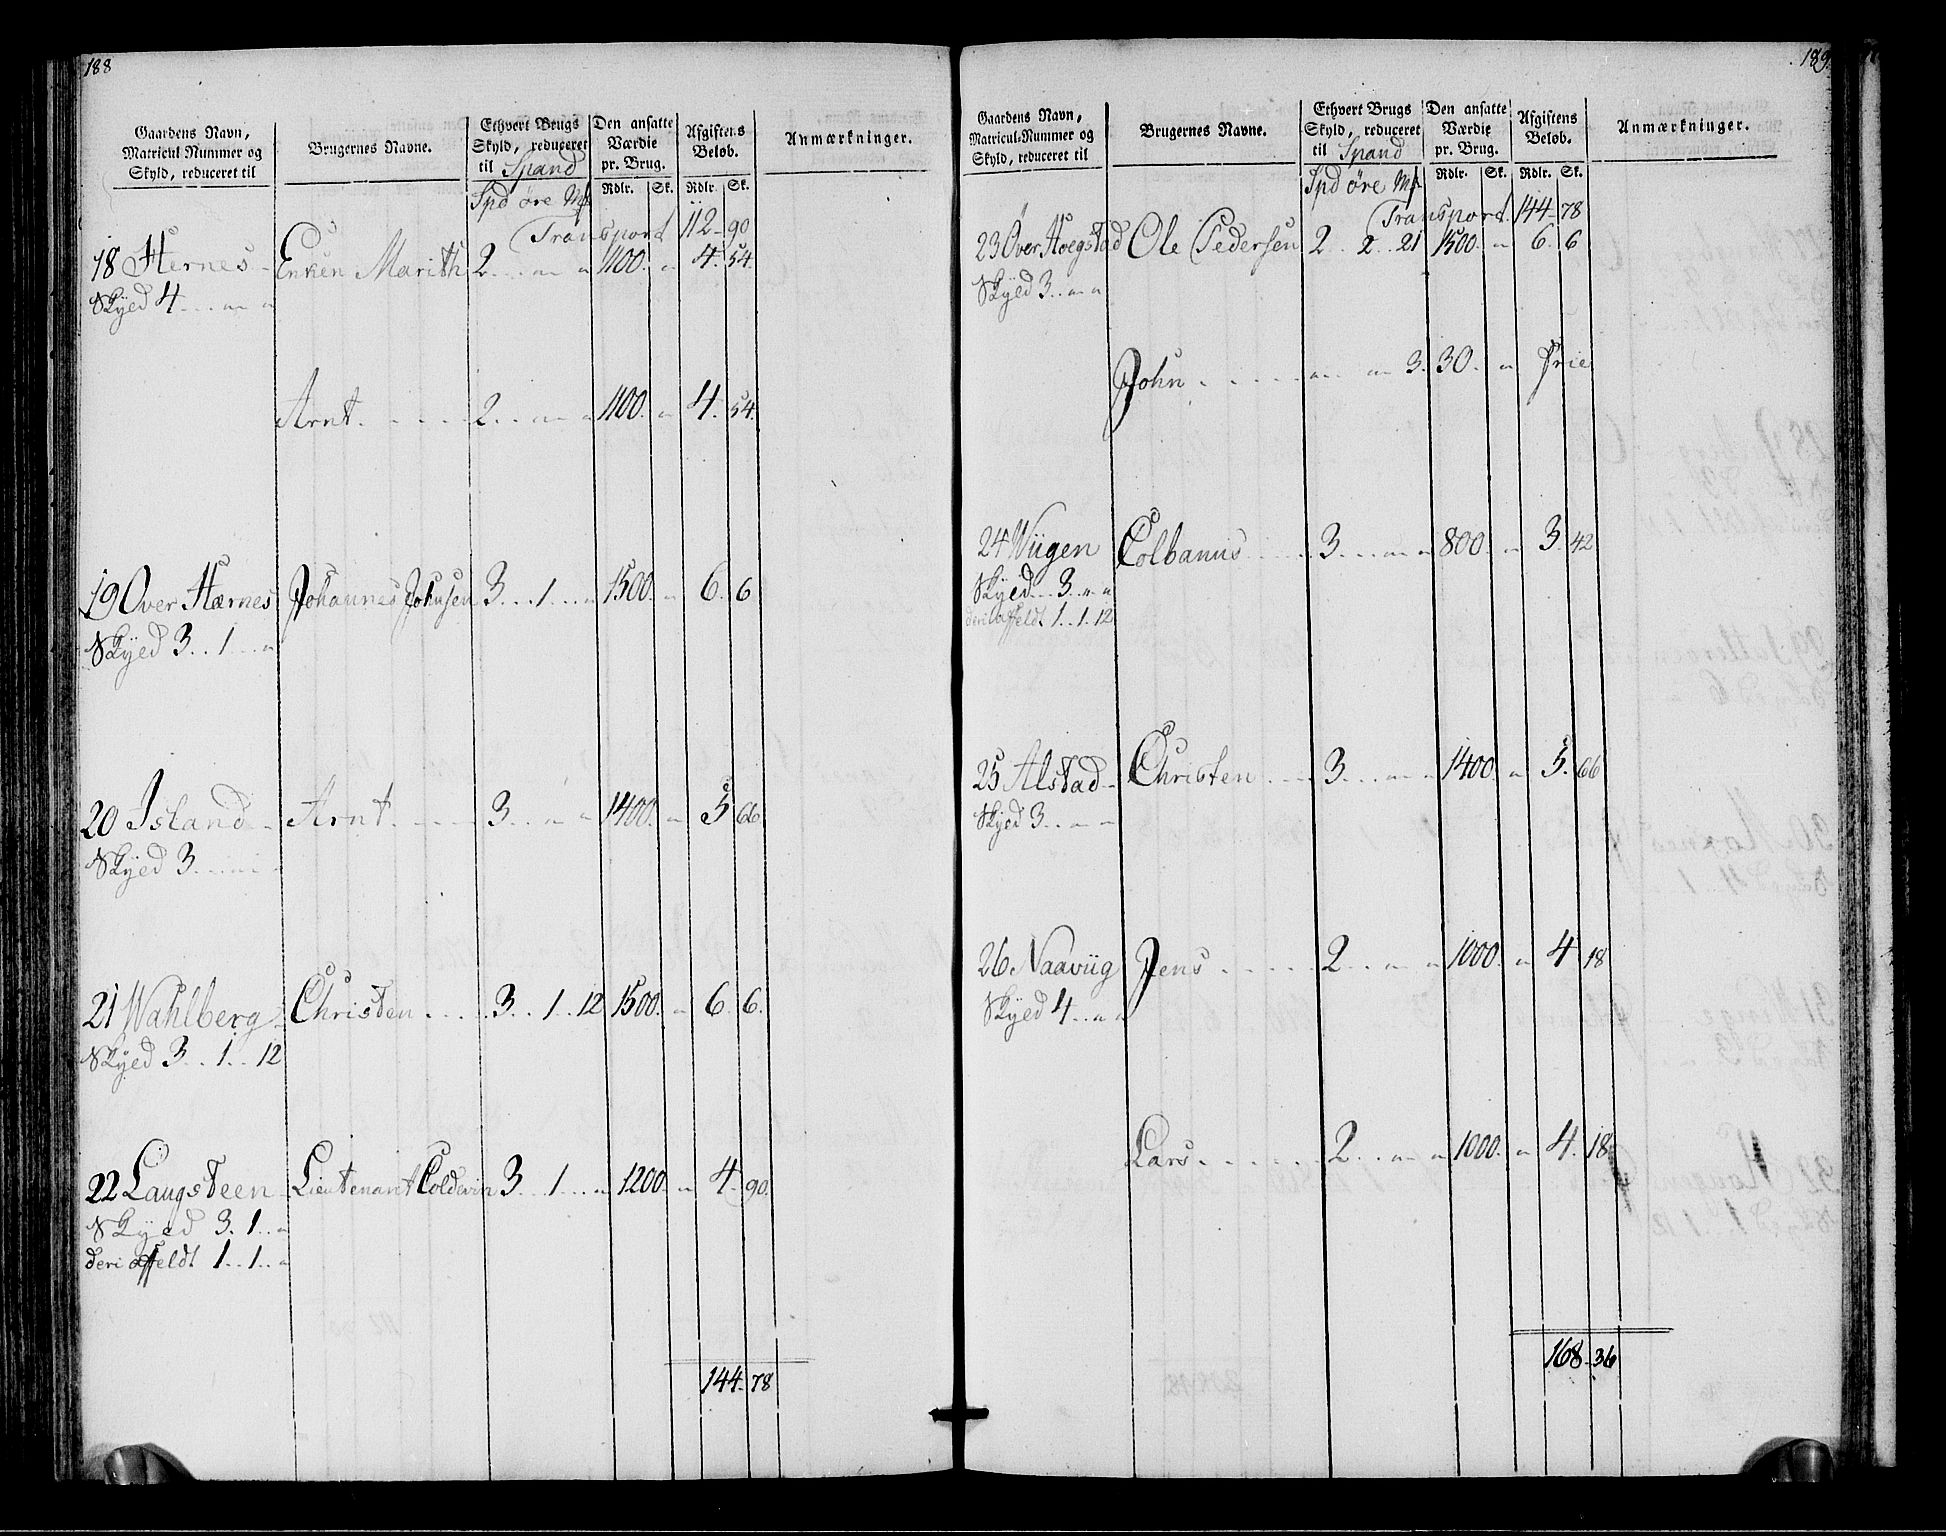 188
Gaardens Navn, Matricul Nummer og Skyld, reduceret til
Brugernes Navne.
Ethvert Brugs Skyld, reduceret til Spand
Den ansatte Værdie pr. Brug.
Afgiftens Beløb.
Anmærkninger.
Spd øre Mk
Rdlr. Sk. Rdlr. Sk.
Transport 112 90
18 Hernes Enken Marith 2 „ „ 1100. „ 4. 54.
Skyed 4 „ „
Arnt 2 „ „ 1100. „ 4. 54.
19 Over Hærnes Johannes Johnsen 3 1 „ 1500. „ 6. 6
Skyed 3 1 „
20 Island Arnt 3 „ „ 1400. „ 5 66
Skyed 3 „ „
21 Wahlberg Christen 3 1 12 1500. „ 6 6.
Skyed 3 1 12
22 Laugsteen Lieutenant Coldevin 3 1 „ 1200. „ 4 90.
Skyed 3. 1 „
deri affeldt 1 1 „
144 78
189
Gaardens Navn, Matricul-Nummer og Skyld, reduceret til
Brugernes Navne.
Ethvert Brugs Skyld, reduceret til Spand
Den ansatte Værdie pr. Brug.
Afgiftens Beløb.
Anmærkninger.
Spd øre Mk
Rdlr. Sk. Rdlr. Sk.
Transport. 144 78
23 Over Hoegstad Ole Pedersen 2 2 21 1500. „ 6. 6
Skyed 3 „ „
John „ „ 3. 30. „ Frie
24 Wiigen Colbanus 3 „ „ 800. „ 3. 42
Skyed 3 „ „
deri affeldt 1 1 12
25 Alstad Christen 3 „ „ 1400. „ 5. 66
Skyed 3 „ „
26 Naaviig Jens 2 „ „ 1000. „ 4 18
Skyed 4 „ „
Lars 2 „ „ 1000. „ 4. 18
168 36